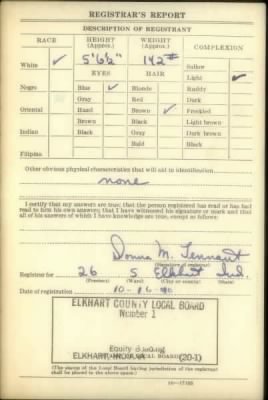 REGISTRAR'S REPORT
DESCRIPTION OF REGISTRANT
RACE HEIGHT (Approx.) WEIGHT (Approx.) COMPLEXION
White ✓ 5'6½" 142# Sallow
EYES HAIR Light ✓
Negro Blue ✓ Blonde Ruddy
Gray Red Dark
Oriental Hazel Brown ✓ Freckled
Brown Black Light brown
Indian Black Gray Dark brown
Bald Black
Filipino
Other obvious physical characteristics that will aid in identification
none
I certify that my answers are true; that the person registered has read or has had
read to him his own answers; that I have witnessed his signature or mark and that
all of his answers of which I have knowledge are true, except as follows:
Donna M. Tennant
(Signature of registrar)
Registrar for 26 5 Elkhart Ind.
(Precinct) (Ward) (City or county) (State)
Date of registration 10-16-40
ELKHART COUNTY LOCAL BOARD
Number 1
Equity Building
ELKHART, INDIANA (20-1)
(The stamp of the Local Board having jurisdiction of the registrant
shall be placed in the above space.)